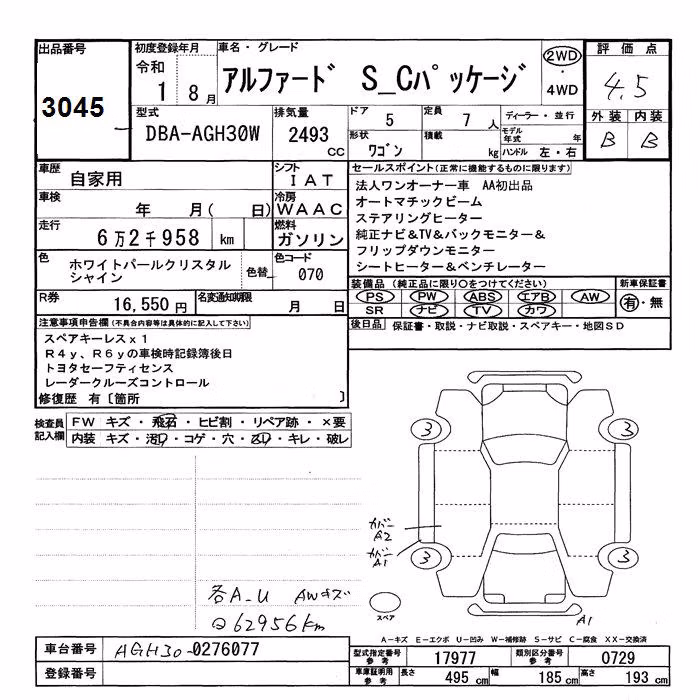 出品番号
3045
初度登録年月
令和
1 8月
車名・グレード
アルファード S_Cパッケージ
2WD
・
4WD
評価点
4.5
外装 内装
B B
型式
DBA-AGH30W
排気量
2493
CC
ドア
5
定員
7 人
ディーラー・並行
モデル年式 年
形状
ワゴン
積載
kg
ハンドル 左・右
車歴
自家用
シフト
IAT
車検
年 月( 日)
冷房
WAAC
走行
6万2千958 km
燃料
ガソリン
色
ホワイトパールクリスタル
シャイン
色替
色コード
070
R券
16,550円
名変通知期限
月 日
セールスポイント(正常に機能するものに限ります)
法人ワンオーナー車 AA初出品
オートマチックビーム
ステアリングヒーター
純正ナビ&TV&バックモニター&
フリップダウンモニター
シートヒーター&ベンチレーター
装備品(純正品に限り○をつけてください)
PS PW ABS エアB AW
SR ナビ TV カワ
新車保証書
有・無
後日品 保証書・取説・ナビ取説・スペアキー・地図SD
注意事項申告欄(不具合内容等は具体的に記入して下さい)
スペアキーレスx1
R4y、R6yの車検時記録簿後日
トヨタセーフティセンス
レーダークルーズコントロール
修復歴 有〔箇所 〕
検査員
記入欄
FW キズ・飛石・ヒビ割・リペア跡・×要
内装 キズ・汚レ・コゲ・穴・スレ・キレ・破レ
3
3
3
3
カバー
A2
カバー
A1
各A.U AWキズ
62956km
スペア
A1
A-キズ E-エクボ U-凹み W-補修跡 S-サビ C-腐食 XX-交換済
車台番号
AGH30-0276077
登録番号
型式指定番号
参考
17977
類別区分番号
参考
0729
車庫証明用
参考
長さ 495 cm 幅 185 cm 高さ 193 cm